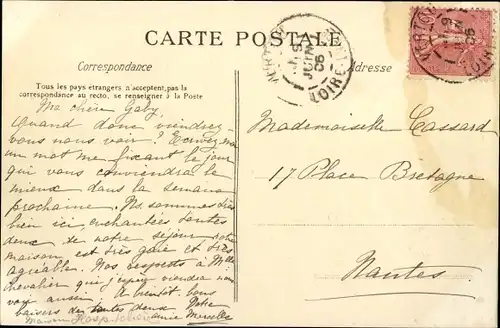 CARTE POSTALE
Correspondance
Adresse
Tous les pays étrangers n'acceptent pas la
correspondance au recto, se renseigner à la Poste
Ma chère Gaby,
Quand donc viendrez-
vous nous voir ? Ecrivez-moi
un mot me fixant le jour
qui vous conviendra le
mieux dans la semaine
prochaine. Ns sommes très
bien ici, enchantées toutes
deux de notre séjour, notre
maison est très gaie et très
agréable. Nos respects à Mlle
chevalier que j'espère viendra nous
voir aussi. A bientôt. bons
baisers de toutes deux Votre
amie Marcelle
Maison
Mademoiselle Cassard
17 Place Bretagne
Nantes
VERTOU
9
JUIN
06
LOIRE
VERTOU
9
06